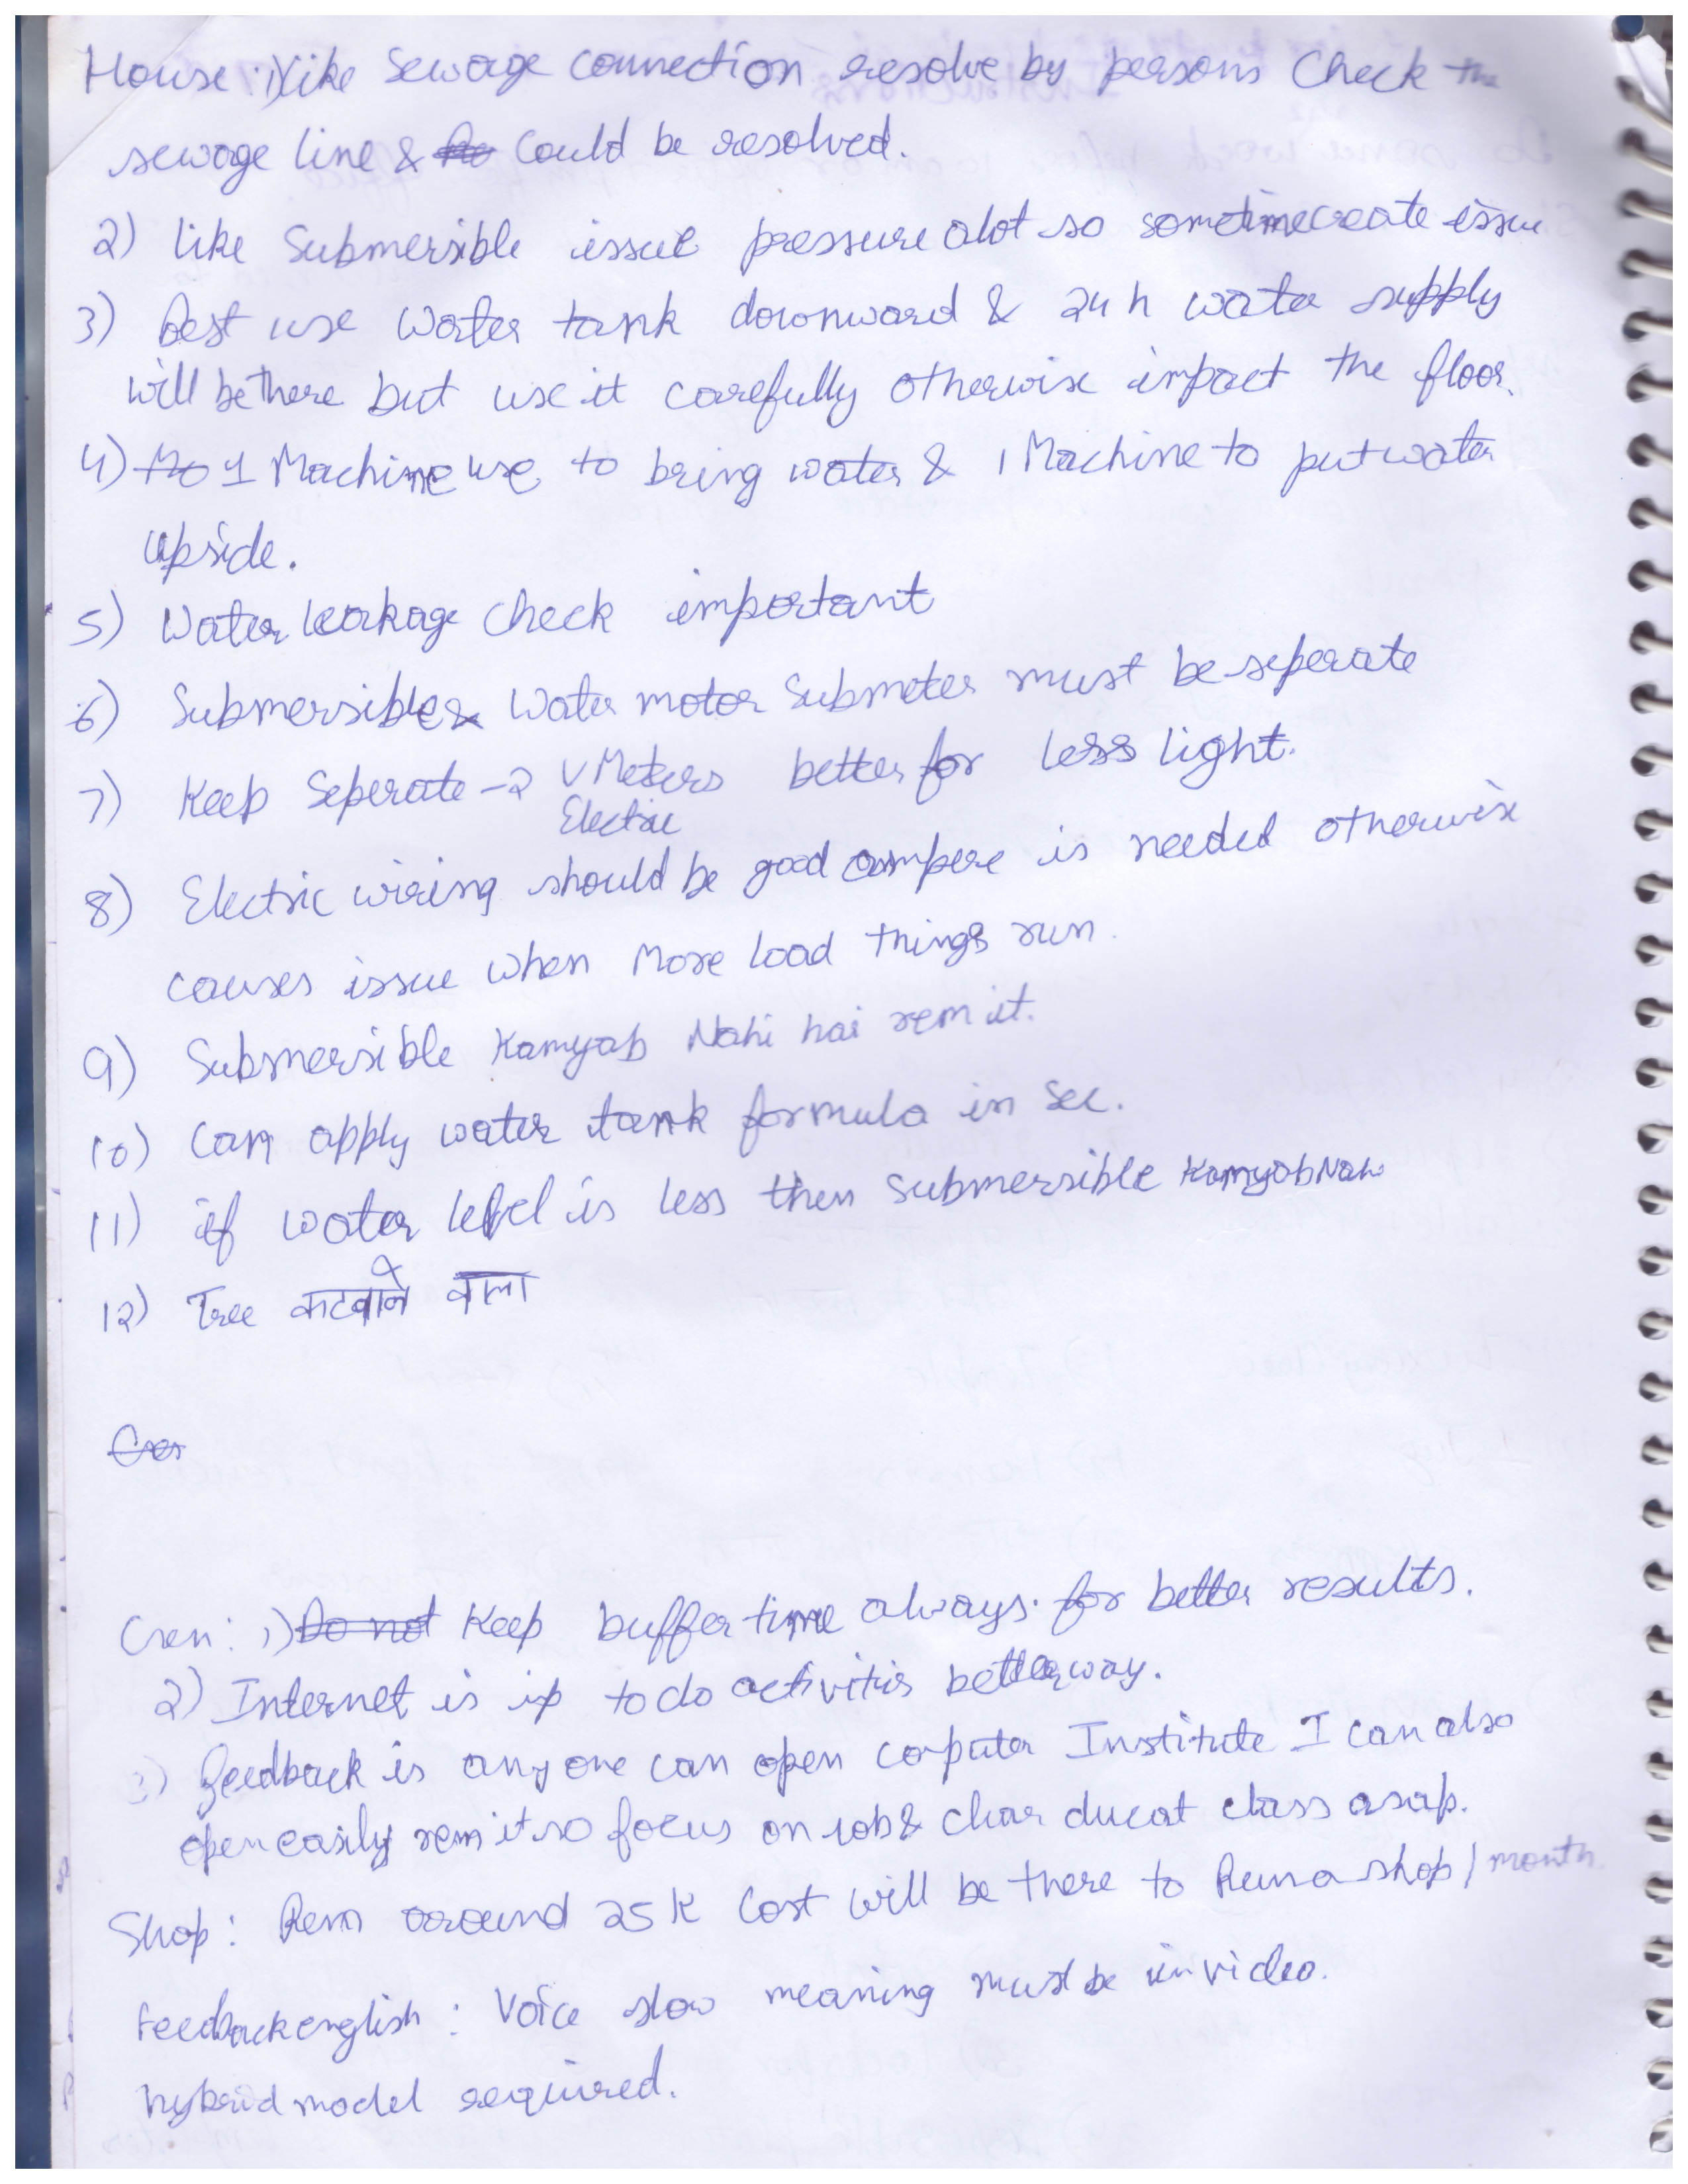 House: 1) like Sewage connection resolve by persons Check the
sewage line & could be resolved.
2) like Submersible issue pressure alot so sometime create issue
3) Best use Water tank downward & 24 h water supply
will be there but use it carefully otherwise impact the floor.
4) 1 Machine use to bring water & 1 Machine to put water
upside.
5) Water leakage check important
6) Submersible & Water motor Submeter must be seperate
7) Keep Seperate - 2 Meters better for less light.
Electric
8) Electric wiring should be good ampere is needed otherwise
causes issue when More load things run.
9) Submersible Kamyab Nahi hai rem it.
10) Can apply water tank formula in sec.
11) if water level is less then submersible Kamyab Nahi
12) Tree कटवाने वाला
Gen: 1) Do not Keep buffer time always for better results.
2) Internet is to do activitis better way.
3) Feedback is any one can open coputer Institute I can also
open easily rem it so focus on job & char ducat class asap.
Shop: Rem around 25 K Cost will be there to Run a shop / month.
Feedback english: Voice slow meaning must be in video.
hybrid model required.